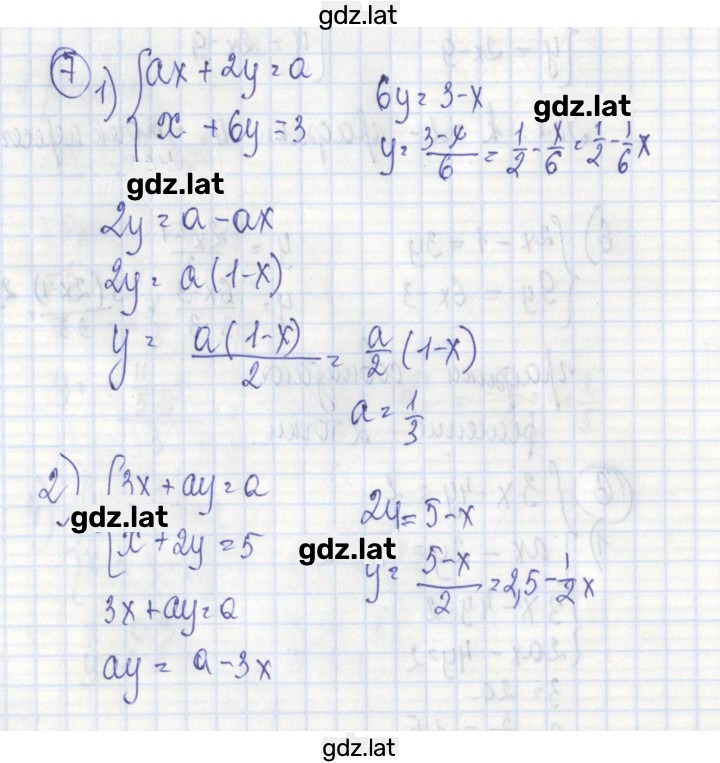 gdz.lat
7
1) { ax + 2y = a
x + 6y = 3
6y = 3-x
gdz.lat
y = (3-x)/6 = 1/2 - x/6 = 1/2 - 1/6 x
gdz.lat
2y = a - ax
2y = a(1-x)
y = a(1-x)/2 = a/2 (1-x)
a = 1/3
2) { 3x + ay = a
x + 2y = 5
gdz.lat
2y = 5-x
gdz.lat
y = (5-x)/2 = 2,5 - 1/2 x
3x + ay = a
ay = a - 3x
gdz.lat